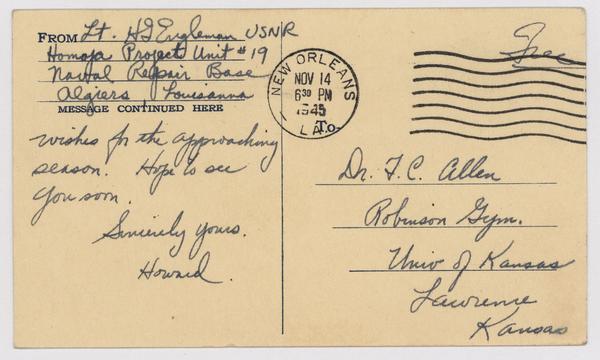 FROM Lt. HG Engleman USNR
Homoja Project Unit #19
Naval Repair Base
Algiers, Louisanna
MESSAGE CONTINUED HERE
wishes for the approaching
season. Hope to see
you soon.
Sincerely yours.
Howard.
NEW ORLEANS
NOV 14
6 30 PM
1945
LA.
1
Free
To.
Dr. F.C. Allen
Robinson Gym.
Univ of Kansas
Lawrence
Kansas